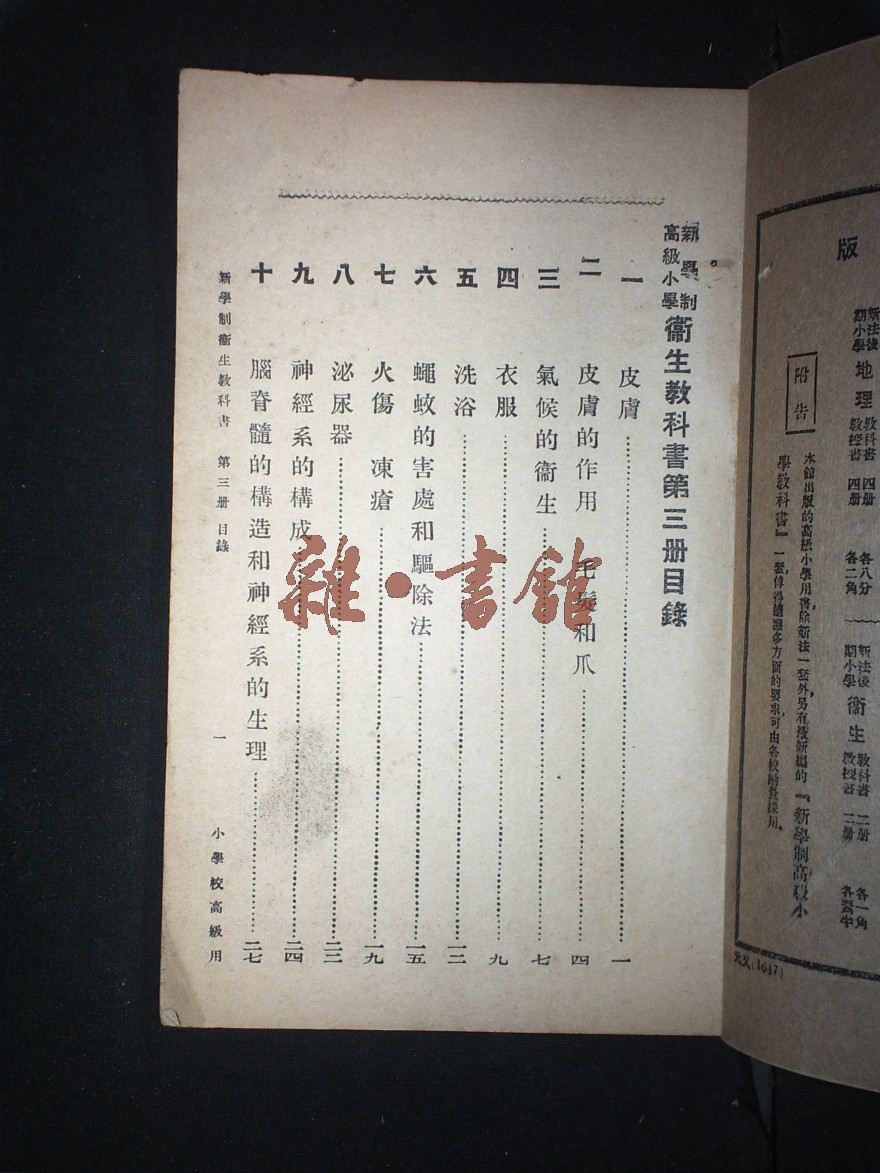 版
新法後期小學 地理 教科書 四册 各八分
教授書 四册 各二角
新法後期小學 衞生 教科書 二册 各一角
教授書 二册
附告
本館出版的高級小學用書除新法一套外,另有
『新學制高級小
學教科書』一套,
新學制
高級小學
衞生教科書第三册目錄
一 皮膚 一
二 皮膚的作用 毛髮和爪 四
三 氣候的衞生 七
四 衣服 九
五 洗浴 一三
六 蠅蚊的害處和驅除法 一五
七 火傷 凍瘡 一九
八 泌尿器 二三
九 神經系的構成 二四
十 腦脊髓的構造和神經系的生理 二七
新學制衞生教科書 第三册 目錄 一 小學校高級用
雜·書館